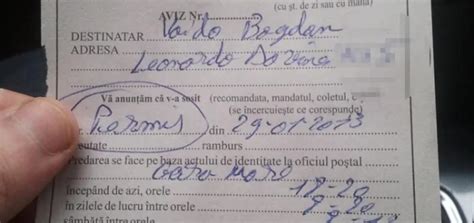 (cu șt. de zi sau cu mână)
AVIZ Nr.
DESTINATAR Vaida Bogdan
ADRESA Leonardo Da Vinci
Vă anunțăm că v-a sosit (recomandata, mandatul, coletul,
(se încercuiește ce corespunde)
Permis din 29-01-2013
ramburs
Predarea se face pe baza actului de identitate la oficiul poștal
Gara Mare
începând de azi, orele 12-20
în zilele de lucru între orele 8-20
sâmbăta între orele